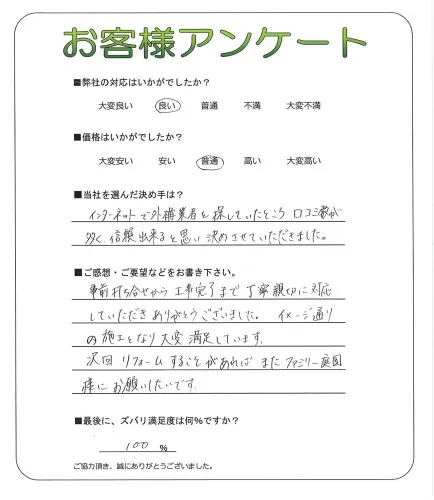 お客様アンケート
■弊社の対応はいかがでしたか？
大変良い 良い 普通 不満 大変不満
■価格はいかがでしたか？
大変安い 安い 普通 高い 大変高い
■当社を選んだ決め手は？
インターネットで外構業者を探していたところ 口コミ数が
多く、信頼出来ると思い決めさせていただきました。
■ご感想・ご要望などをお書き下さい。
事前打ち合せから工事完了まで丁寧親切に対応
していただきありがとうございました。 イメージ通り
の施工となり大変満足しています。
次回リフォームすることがあればまたファミリー庭園
様にお願いしたいです。
■最後に、ズバリ満足度は何%ですか？
100 %
ご協力頂き、誠にありがとうございました。